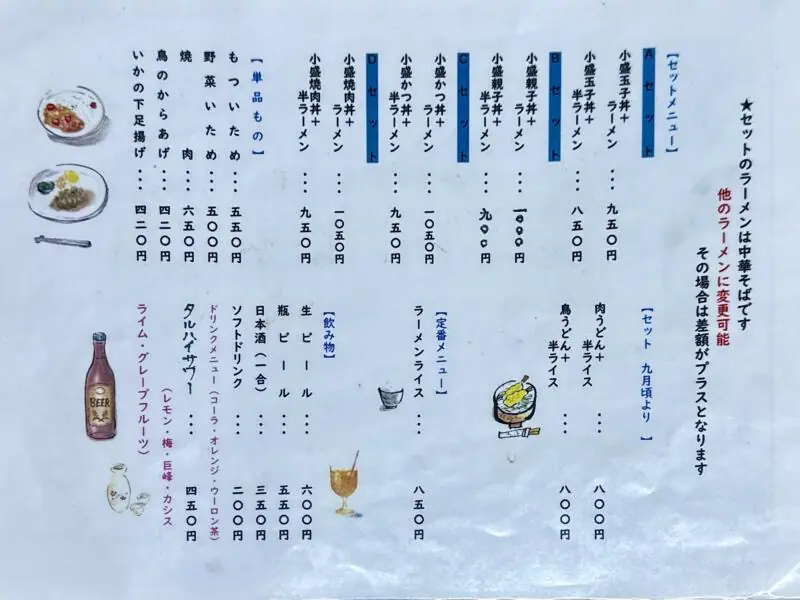 ★セットのラーメンは中華そばです
他のラーメンに変更可能
その場合は差額がプラスとなります
【セットメニュー】
Aセット
小盛玉子丼＋ラーメン ・・・ 九五〇円
小盛玉子丼＋半ラーメン ・・・ 八五〇円
Bセット
小盛親子丼＋ラーメン ・・・ 一〇〇〇円
小盛親子丼＋半ラーメン ・・・ 九〇〇円
Cセット
小盛かつ丼＋ラーメン ・・・ 一〇五〇円
小盛かつ丼＋半ラーメン ・・・ 九五〇円
Dセット
小盛焼肉丼＋ラーメン ・・・ 一〇五〇円
小盛焼肉丼＋半ラーメン ・・・ 九五〇円
【単品もの】
もついため ・・・ 五五〇円
野菜いため ・・・ 五〇〇円
焼肉 ・・・ 六五〇円
鳥のからあげ ・・・ 四二〇円
いかの下足揚げ ・・・ 四二〇円
【セット 九月頃より】
肉うどん＋半ライス ・・・ 八〇〇円
鳥うどん＋半ライス ・・・ 八〇〇円
【定番メニュー】
ラーメンライス ・・・ 八五〇円
【飲み物】
生ビール ・・・ 六〇〇円
瓶ビール ・・・ 五五〇円
日本酒（一合） ・・・ 三五〇円
ソフトドリンク ・・・ 二〇〇円
ドリンクメニュー（コーラ・オレンジ・ウーロン茶）
タルハイサワー ・・・ 四五〇円
（レモン・梅・巨峰・カシス
ライム・グレープフルーツ）
BEER